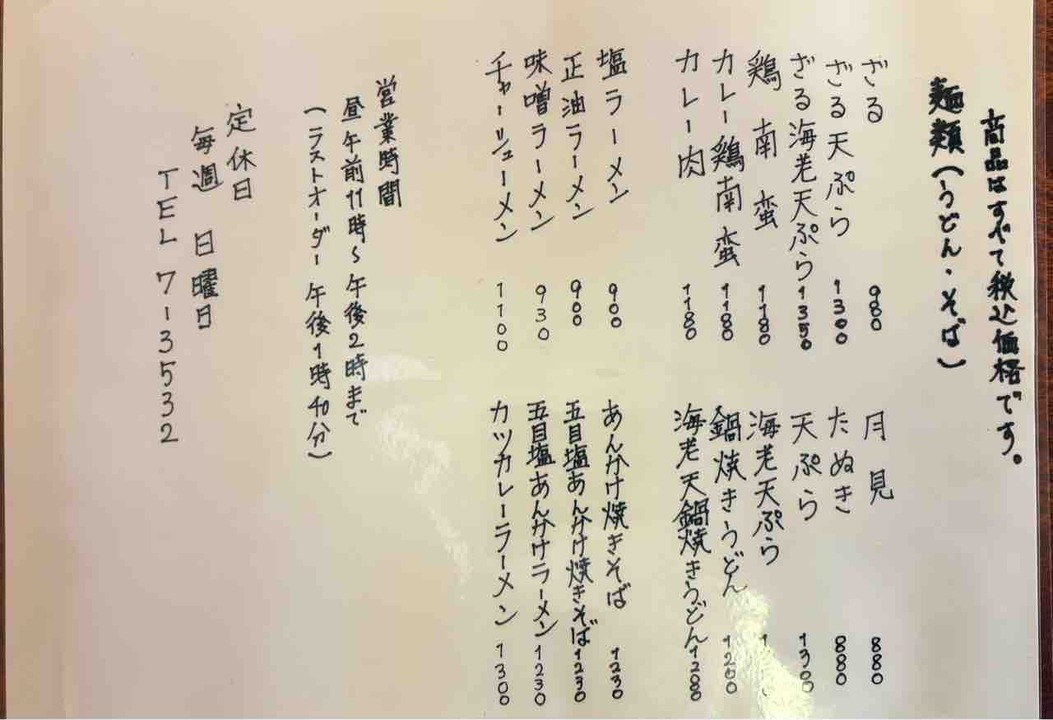 商品はすべて税込価格です。
麺類（うどん・そば）
ざる 980
月見 880
ざる天ぷら 1300
たぬき 880
ざる海老天ぷら 1350
天ぷら 1300
鶏南蛮 1180
海老天ぷら
カレー鶏南蛮 1180
鍋焼きうどん 1200
カレー肉 1180
海老天鍋焼きうどん 1280
塩ラーメン 900
あんかけ焼きそば 1230
正油ラーメン 900
五目塩あんかけ焼きそば 1230
味噌ラーメン 930
五目塩あんかけラーメン 1230
チャーシューメン 1100
カツカレーラーメン 1300
営業時間
昼午前11時〜午後2時まで
（ラストオーダー午後1時40分）
定休日
毎週 日曜日
TEL 7-3532